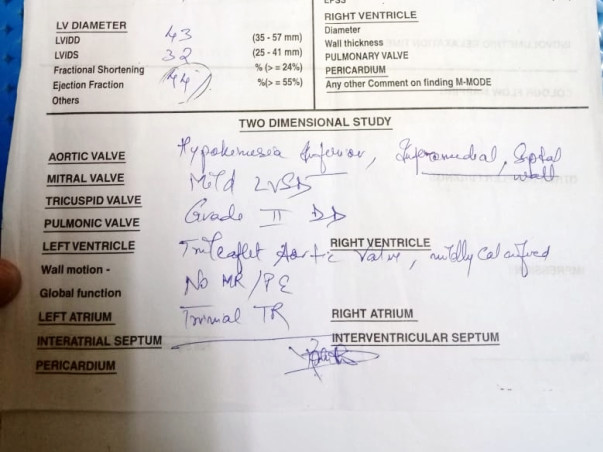 EPSS
LV DIAMETER RIGHT VENTRICLE
LVIDD 43 (35 - 57 mm) Diameter
LVIDS 32 (25 - 41 mm) Wall thickness
Fractional Shortening % (> = 24%) PULMONARY VALVE
Ejection Fraction 44 %(> = 55%) PERICARDIUM
Others Any other Comment on finding M-MODE
TWO DIMENSIONAL STUDY
AORTIC VALVE Hypokinesia Inferior, Inferomedial, Septal wall
MITRAL VALVE Mild LVSD
TRICUSPID VALVE Grade II DD
PULMONIC VALVE
LEFT VENTRICLE Trileaflet Aortic Valve, mildly calcified RIGHT VENTRICLE
Wall motion -
Global function No MR/PE
LEFT ATRIUM Trivial TR RIGHT ATRIUM
INTERATRIAL SEPTUM INTERVENTRICULAR SEPTUM
PERICARDIUM